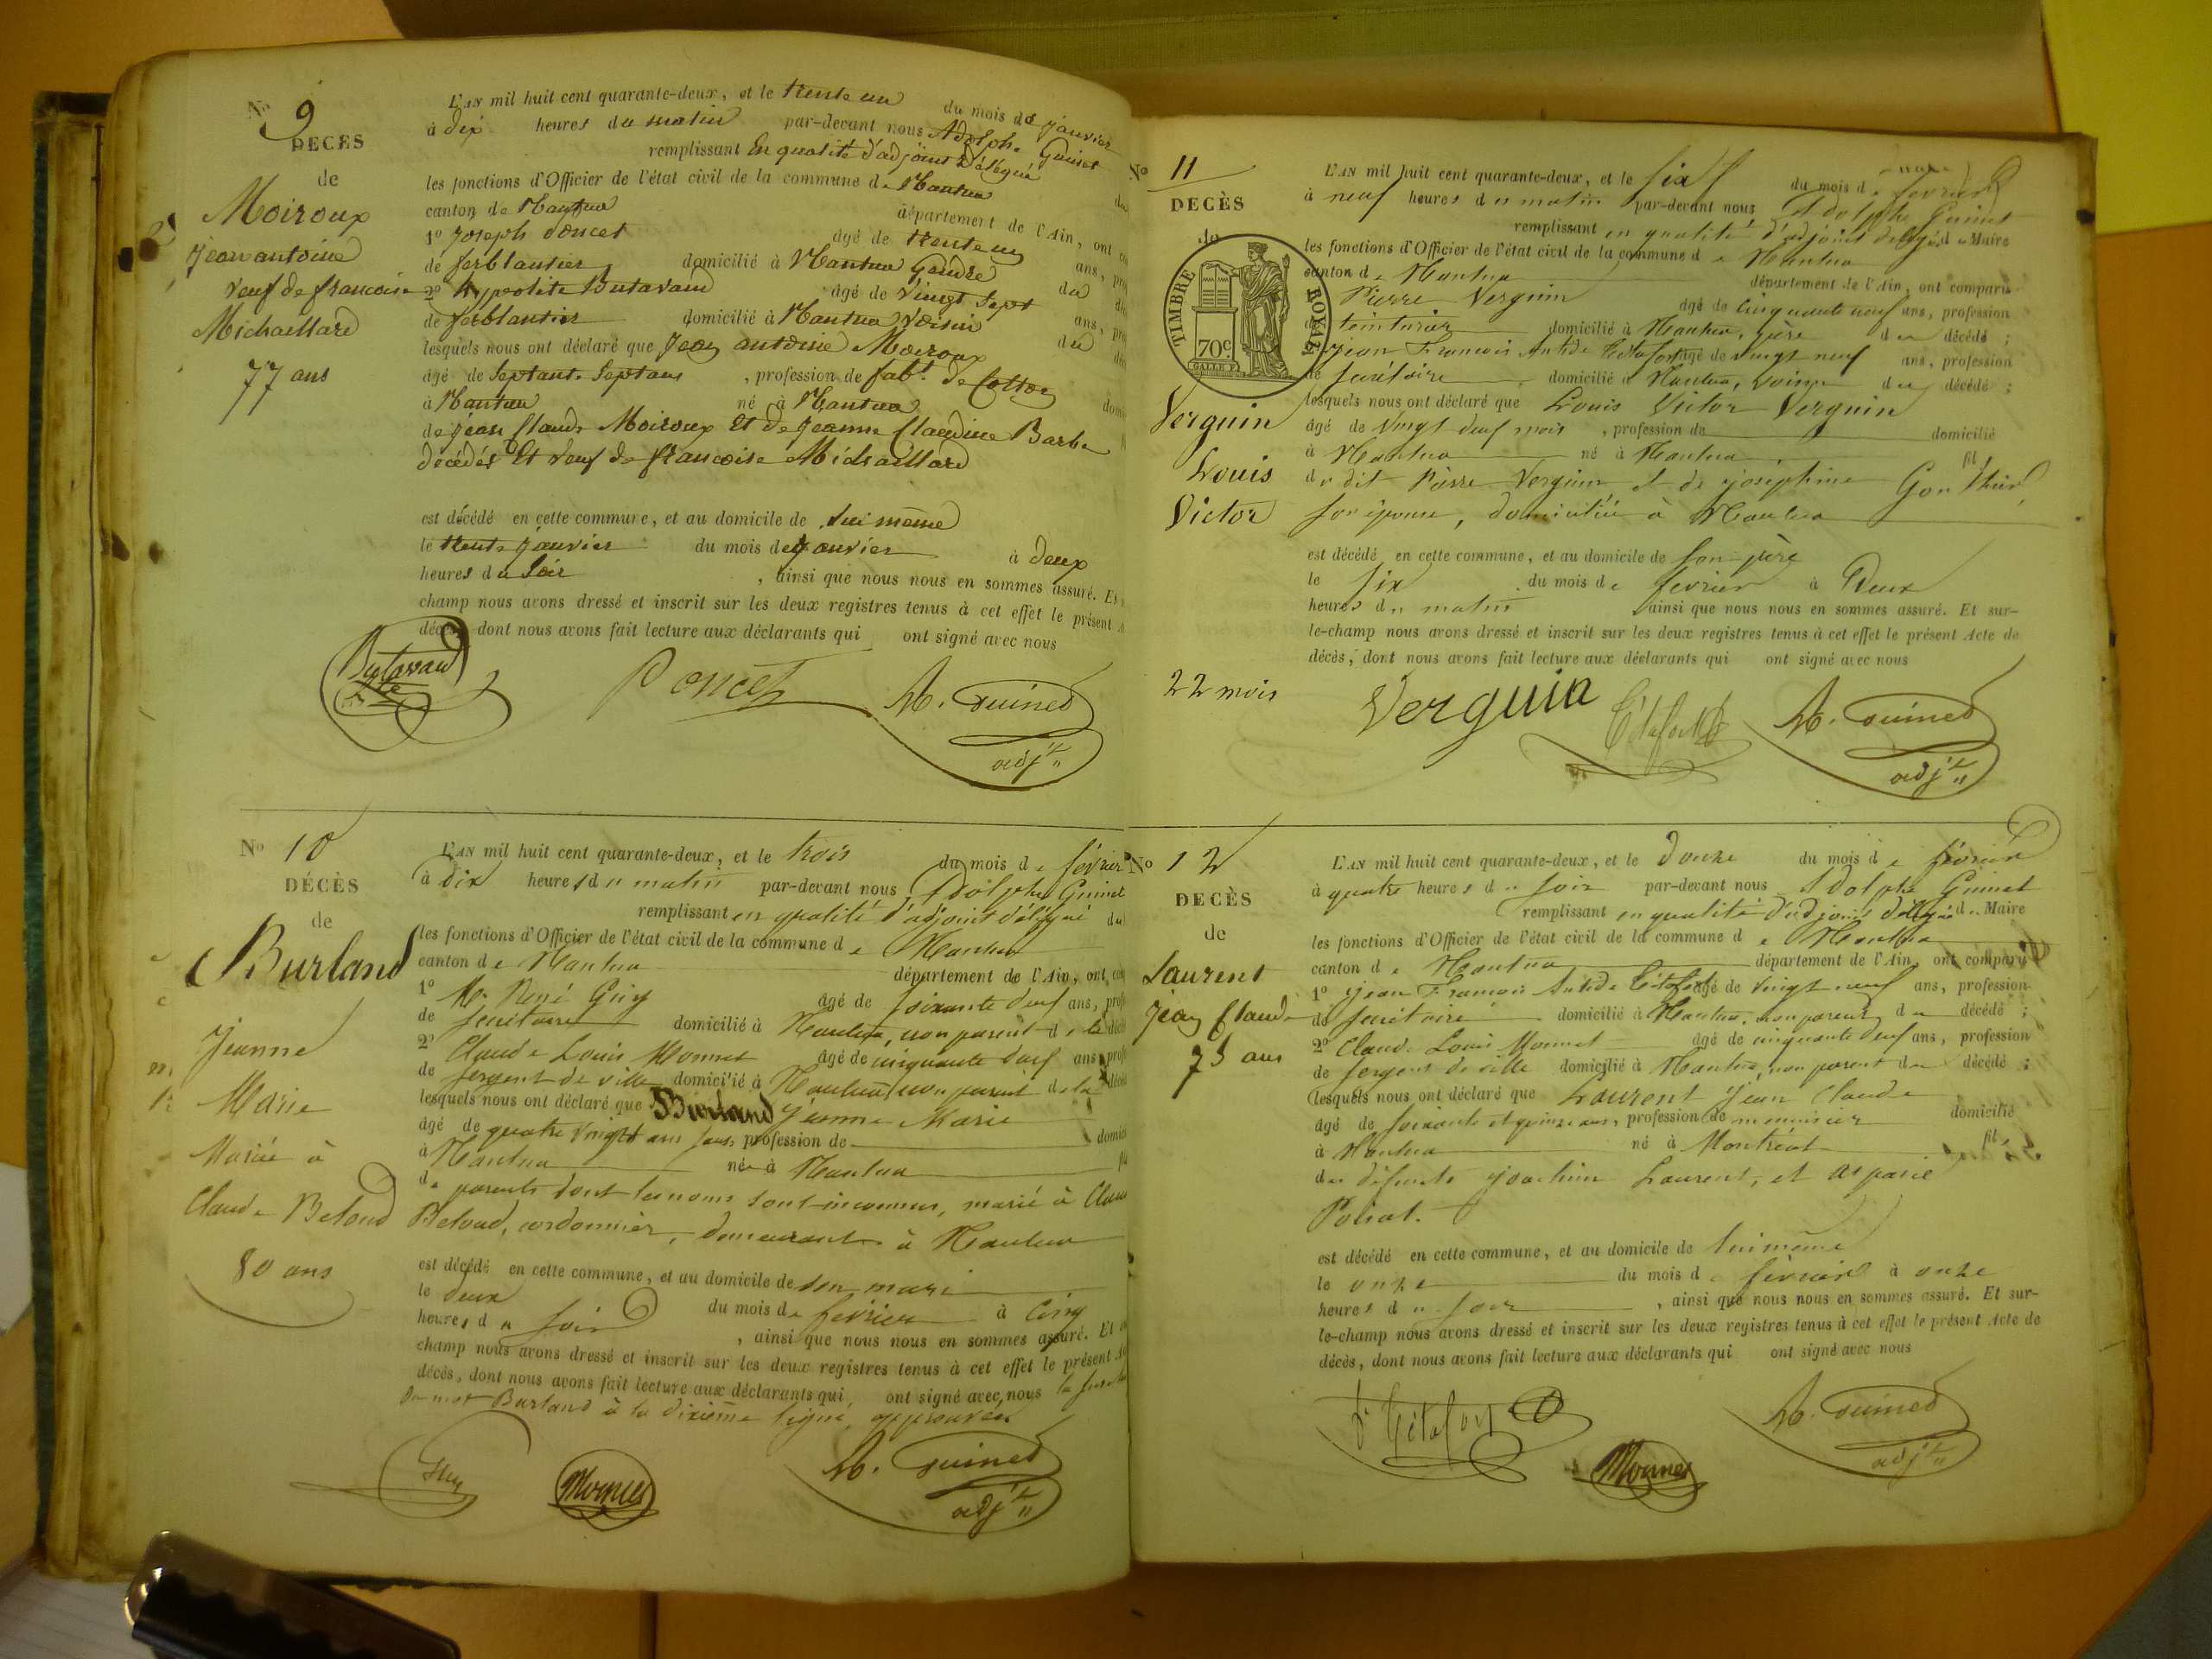 No 9
DÉCÈS
de
Moiroux
Jean antoine
veuf de francoise
Michaillard
77 ans
L'AN mil huit cent quarante-deux, et le trente un du mois de janvier
à dix heures du matin par-devant nous Adolphe Guinet
remplissant En qualité d'adjoint délégué du
les fonctions d'Officier de l'état civil de la commune de Nantua
canton de Nantua département de l'Ain, ont
1o Joseph Poncet âgé de trente un ans,
de ferblantier domicilié à Nantua Gendre du
2o hypolite Butavand âgé de vingt sept ans,
de ferblantier domicilié à Nantua voisin du
lesquels nous ont déclaré que Jean antoine Moiroux
âgé de Septante Sept ans, profession de fabt. de Cotton
à Nantua né à Nantua
de jean Claude Moiroux Et de Jeanne Claudine Barbe
décédés Et veuf de francoise Michaillard
est décédé en cette commune, et au domicile de lui même
le trente janvier du mois de janvier à deux
heures du Soir, ainsi que nous nous en sommes assuré. Et
champ nous avons dressé et inscrit sur les deux registres tenus à cet effet le présent
décès, dont nous avons fait lecture aux déclarants qui ont signé avec nous
Butavand
Poncet
A. Guinet
adjt
No 10
DÉCÈS
de
Burland
Jeanne
Marie
Mariée à
Claude Beloud
80 ans
L'AN mil huit cent quarante-deux, et le trois du mois de février
à dix heures du matin par-devant nous Adolphe Guinet
remplissant en qualité d'adjoint délégué du
les fonctions d'Officier de l'état civil de la commune de Nantua
canton de Nantua département de l'Ain, ont
1o Mr René Guy âgé de soixante deuf ans,
de secrétaire domicilié à Nantua, non parent de la
2o Claude Louis Monnet âgé de cinquante deuf ans
de sergent de ville domicilié à Nantua, non parent de la
lesquels nous ont déclaré que Burland Jeanne Marie
âgé de quatre vingts ans, sans profession de
à Nantua née à Nantua
de parents dont les noms sont inconnus, marié à
Beloud, cordonnier, demeurant à Nantua
est décédé en cette commune, et au domicile de son mari
le deux du mois de février à cinq
heures du soir, ainsi que nous nous en sommes assuré. Et
champ nous avons dressé et inscrit sur les deux registres tenus à cet effet le présent
décès, dont nous avons fait lecture aux déclarants qui ont signé avec nous
du mot Burland à la dixième ligne approuvée
Guy
Monnet
A. Guinet
adjt
No 11
DÉCÈS
de
TIMBRE ROYAL
70c
Verguin
Louis
Victor
22 mois
L'AN mil huit cent quarante-deux, et le six du mois de fevrier
à neuf heures du matin par-devant nous Adolphe Guinet
remplissant en qualité d'adjoint délégué du Maire
les fonctions d'Officier de l'état civil de la commune de Nantua
canton de Nantua département de l'Ain, ont comparu
Pierre Verguin âgé de cinquante neuf ans, profession
de teinturier domicilié à Nantua, père du décédé ;
Jean Francois Antide Tétafort âgé de vingt neuf ans, profession
de secrétaire, domicilié à Nantua, voisin du décédé ;
lesquels nous ont déclaré que Louis Victor Verguin
âgé de vingt deuf mois, profession de domicilié
à Nantua né à Nantua, fils
du dit Pierre Verguin et de Joséphine Gonthier
son épouse, domiciliée à Nantua
est décédé en cette commune, et au domicile de son père
le six du mois de fevrier à Deux
heures du matin ainsi que nous nous en sommes assuré. Et sur-
le-champ nous avons dressé et inscrit sur les deux registres tenus à cet effet le présent Acte de
décès, dont nous avons fait lecture aux déclarants qui ont signé avec nous
Verguin
Tétafort
A. Guinet
adjt
No 12
DÉCÈS
de
Laurent
Jean Claude
75 ans
L'AN mil huit cent quarante-deux, et le douze du mois de février
à quatre heures du soir par-devant nous Adolphe Guinet
remplissant en qualité d'adjoint délégué du Maire
les fonctions d'Officier de l'état civil de la commune de Nantua
canton de Nantua département de l'Ain, ont comparu
1o Jean Francois Antide Tétafort âgé de vingt neuf ans, profession
de secrétaire domicilié à Nantua, non parent du décédé ;
2o Claude Louis Monnet âgé de cinquante deuf ans, profession
de sergent de ville domicilié à Nantua, non parent du décédé ;
lesquels nous ont déclaré que Laurent Jean Claude
âgé de soixante et quinze ans, profession de menuisier domicilié
à Nantua né à Montréal fils
des défunts Joachim Laurent, et Asparie
Polsat.
est décédé en cette commune, et au domicile de lui même
le onze du mois de février à onze
heures du soir, ainsi que nous nous en sommes assuré. Et sur-
le-champ nous avons dressé et inscrit sur les deux registres tenus à cet effet le présent Acte de
décès, dont nous avons fait lecture aux déclarants qui ont signé avec nous
Tétafort
Monnet
A. Guinet
adjt